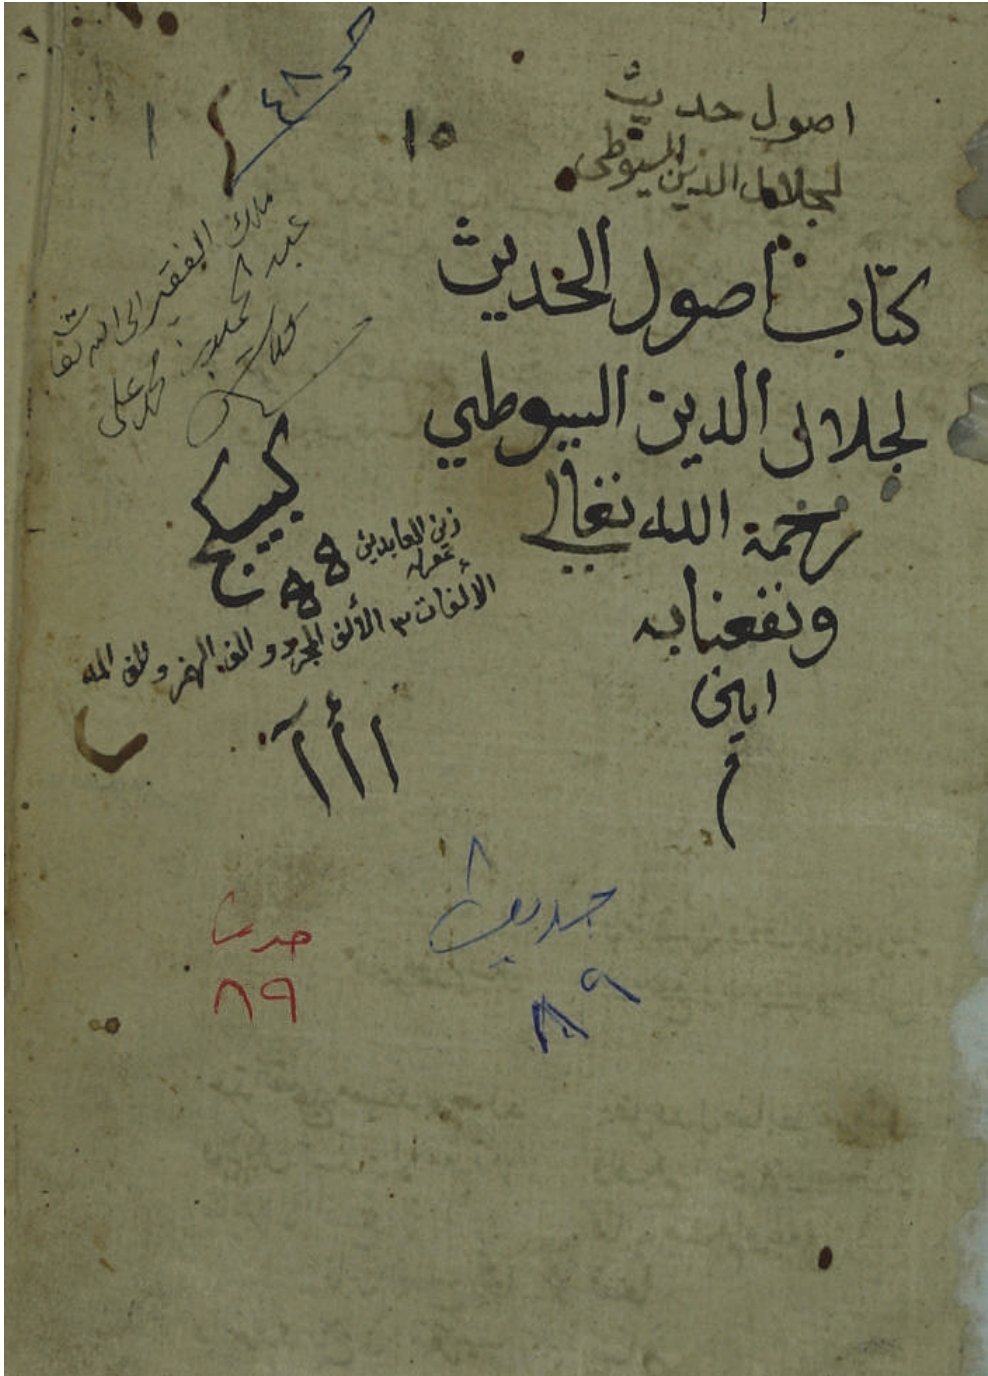 ٤٨
١٥
١
اصول حديث
لجلال الدين السيوطي
كتاب اصول الحديث
لجلال الدين السيوطي
رحمة الله تعالى
ونفعنا به
امين
م
ملك الفقير الى الله تعا
عبد الحميد بن محمد علي
كبيكج
زين العابدين
الألفات ٣ الألف المجرد و الف الهمز و الف المد
ا أ آ
حديث
٨٩
حديث
٨٩